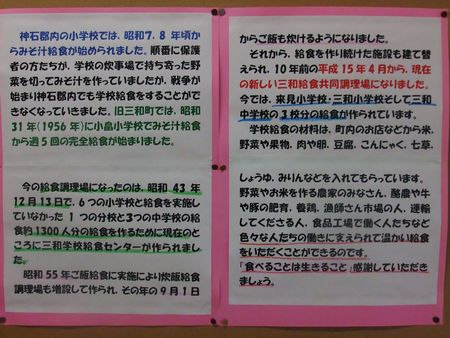 神石郡内の小学校では、昭和7、8年頃か
らみそ汁給食が始められました。順番に保護
者の方たちが、学校の炊事場で持ち寄った野
菜を切ってみそ汁を作っていましたが、戦争が
始まり神石郡内でも学校給食をすることがで
きなくなっていきました。旧三和町では、昭和
31年(1956年)に小畠小学校でみそ汁給食
から週5回の完全給食が始まりました。
今の給食調理場になったのは、昭和43年
12月13日で、6つの小学校と給食を実施し
ていなかった1つの分校と3つの中学校の給
食約1300人分の給食を作るために現在のと
ころに三和学校給食センターが作られまし
た。
昭和55年ご飯給食に実施により炊飯給食
調理場も増設して作られ、その年の9月1日
からご飯も炊けるようになりました。
それから、給食を作り続けた施設も建て替
えられ、10年前の平成15年4月から、現在
の新しい三和給食共同調理場になりました。
今では、来見小学校・三和小学校そして三和
中学校の3校分の給食が作られています。
学校給食の材料は、町内のお店などから米、
野菜や果物、肉や卵、豆腐、こんにゃく、七草、
しょうゆ、みりんなどを入れてもらっています。
野菜やお米を作る農家のみなさん、酪農や牛
や豚の肥育、養鶏、漁師さん市場の人、運輸
してくださる人、食品工場で働く人たちなど
色々な人たちの働きに支えられて温かい給食
をいただくことができるのです。
「食べることは生きること」感謝していただき
ましょう。